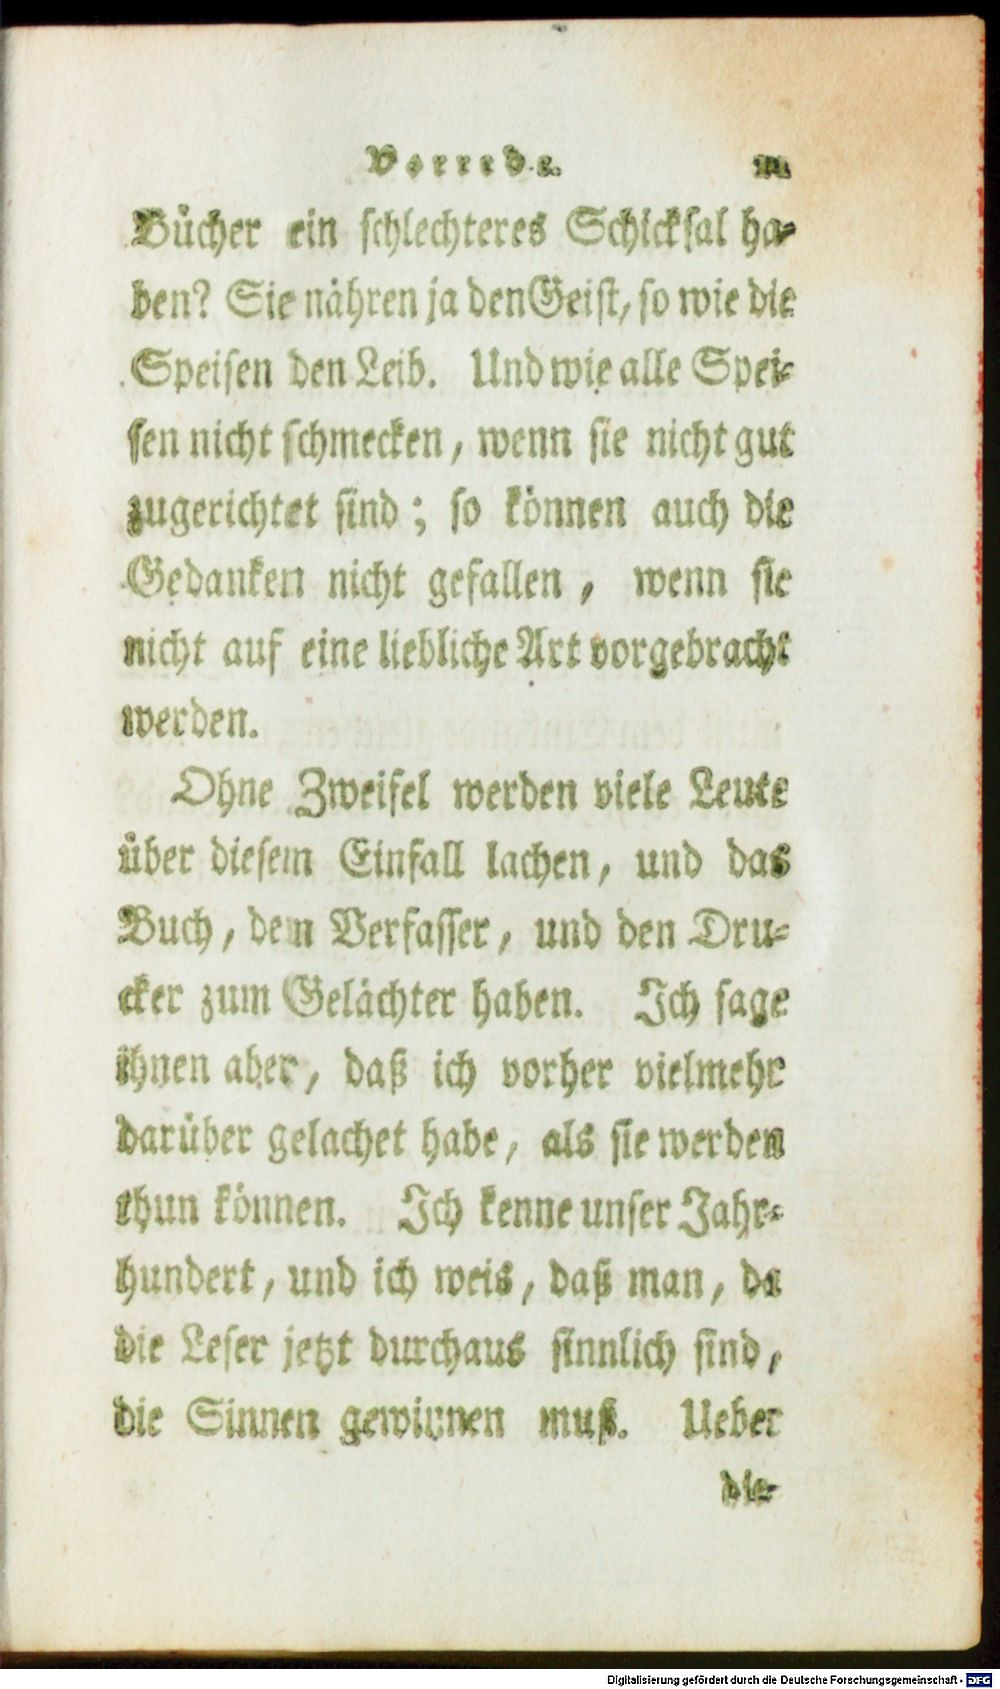 Vorrede.
Bücher ein schlechteres Schicksal ha-
ben? Sie nähren ja den Geist, so wie die
Speisen den Leib. Und wie alle Spei-
sen nicht schmecken, wenn sie nicht gut
zugerichtet sind; so können auch die
Gedanken nicht gefallen, wenn sie
nicht auf eine liebliche Art vorgebracht
werden.
Ohne Zweifel werden viele Leute
über diesem Einfall lachen, und das
Buch, den Verfasser, und den Dru-
cker zum Gelächter haben. Ich sage
ihnen aber, daß ich vorher vielmehr
darüber gelachet habe, als sie werden
thun können. Ich kenne unser Jahr-
hundert, und ich weis, daß man, da
die Leser jetzt durchaus sinnlich sind,
die Sinnen gewinnen muß. Ueber
die-
Digitalisierung gefördert durch die Deutsche Forschungsgemeinschaft - DFG